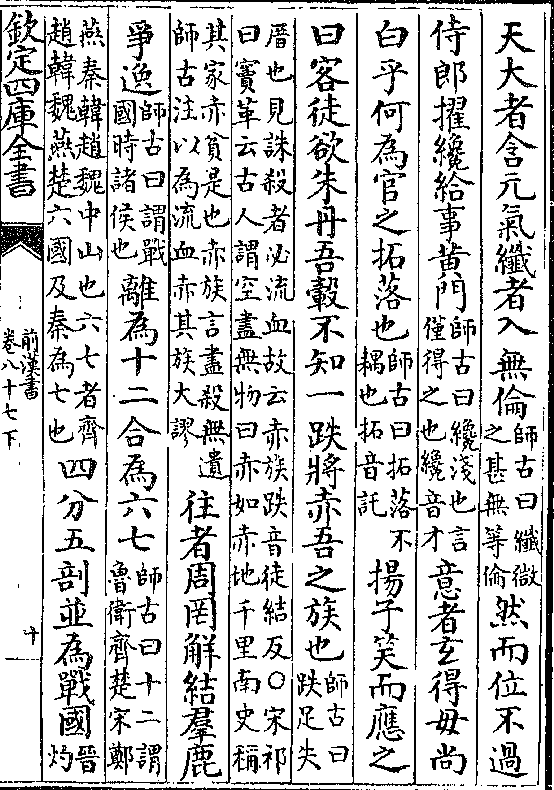 天大者含元氣纎者入無倫
師古曰纎微
之甚無等倫
然而位不過
侍郎擢纔給事黃門
師古曰纔淺也言
僅得之也纔音才
意者玄得毋尚
白乎何為官之拓落也
師古曰拓落不
耦也拓音託
揚子笑而應之
曰客徒欲朱丹吾轂不知一跌將赤吾之族也
師古曰
跌足失
厝也見誅殺者必流血故云赤族跌音徒結反○宋祁
曰竇革云古人謂空盡無物曰赤如赤地千里南史稱
其家赤貧是也赤族言盡殺無遺
師古注以為流血赤其族大謬
往者周罔解結羣鹿
爭逸
師古曰謂戰
國時諸侯也
離為十二合為六七
師古曰十二謂
魯衛齊楚宋鄭
燕秦韓趙魏中山也六七者齊
趙韓魏燕楚六國及秦為七也
四分五剖並為戰國
晉
灼
欽定四庫全書
前漢書
卷八十七下
十